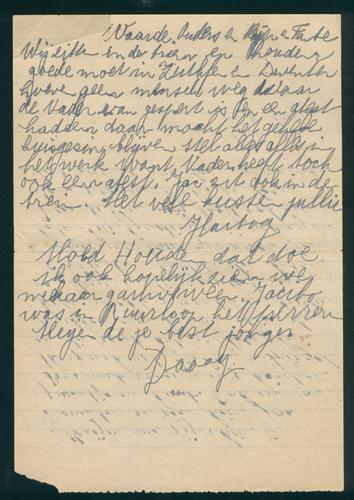 Waarde Ouders en Tante
Wij zitten in de trein en houden
goede moet in Zutphen en Deventer
hoeve geen mensen weg daar
de Vader van gespert is en een atest
hadden, daar mocht het geheele
huisgezin blijven stel alles alles in
het werk want Vader heeft toch
ook een atest. Jac zit ook in de
trein. Met vele kussen jullie
Hartog
Mold Houde dat doe
ik ook hopelijk zien we
mekaar gauw weer. Jacob
was in het
de je best jonge